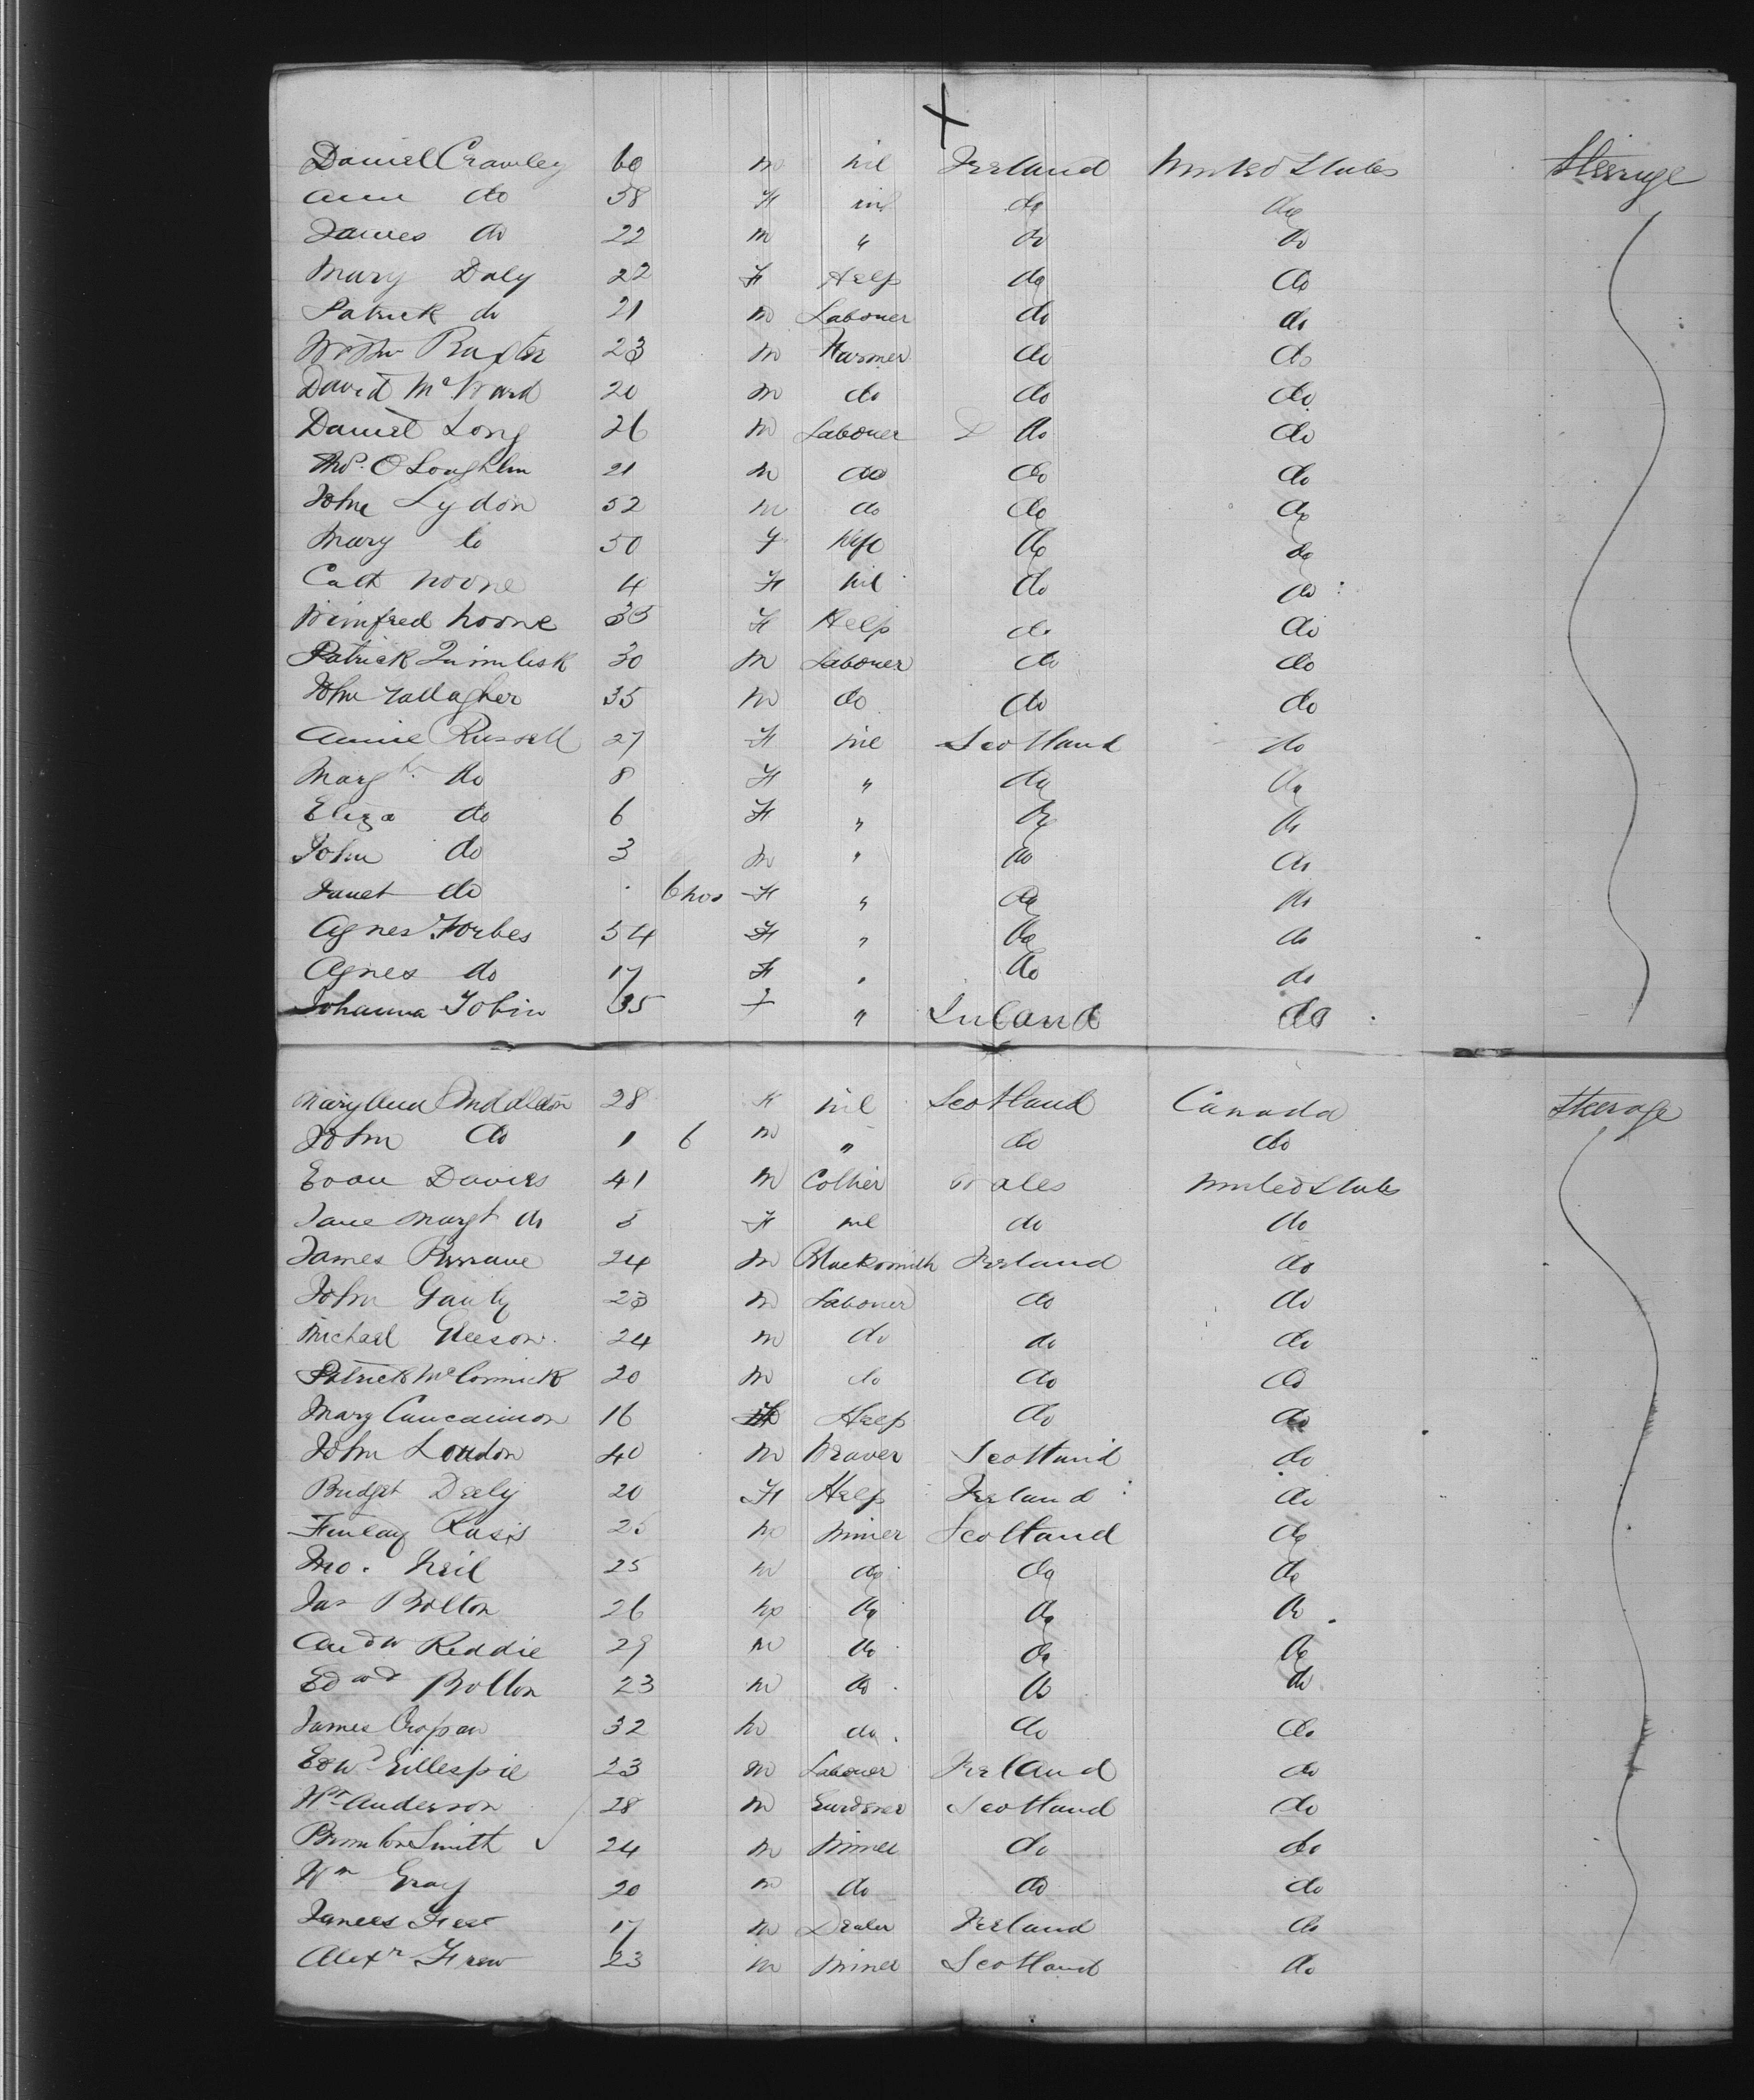 Daniel Crawley 60 m nil Ireland United States Steerage
Ann do 58 F nil do do
James do 22 m " do do
Mary Daly 22 F Help do do
Patrick do 21 m Laborer do do
Baxter 23 m Farmer do do
David McWard 20 m do do do
Daniel Long 26 m Laborer do do
Thos. O Loughlin 21 m do do do
John Lydon 52 m do do do
Mary do 50 F Wife do do
Cath Noone 4 F nil do do
Winifred Noone 35 F Help do do
Patrick Quinlisk 30 m Laborer do do
John Gallagher 35 m do do do
Annie Russell 27 F nil Scotland do
Margt. do 8 F " do do
Eliza do 6 F " do do
John do 3 m " do do
Janet do 6 mos F " do do
Agnes Forbes 54 F " do do
Agnes do 17 F " do do
Johanna Tobin 35 F " Ireland do
Mary Ann Middleton 28 F nil Scotland Canada Steerage
John do 1 6 m " do do
Evan Davies 41 m Collier Wales United States
Jane Margt do 5 F nil do do
James 24 m Blacksmith Ireland do
John Ganty 23 m Laborer do do
Michael Gleeson 24 m do do do
Patrick McCormick 20 m do do do
Mary Concannon 16 F Help do do
John Loudon 40 m Weaver Scotland do
Bridget Deely 20 F Help Ireland do
Finlay 25 m Miner Scotland do
Jno. Neil 25 m do do do
Jas Bolton 26 m do do do
Andw Reddie 29 m do do do
Edwd Bolton 23 m do do do
James 32 m do do do
Edwd Gillespie 23 m Laborer Ireland do
Wm Anderson 28 m Gardener Scotland do
Smith 24 m Miner do do
Wm Gray 20 m do do do
James 17 m Dealer Ireland do
Alexr Frew 23 m Miner Scotland do